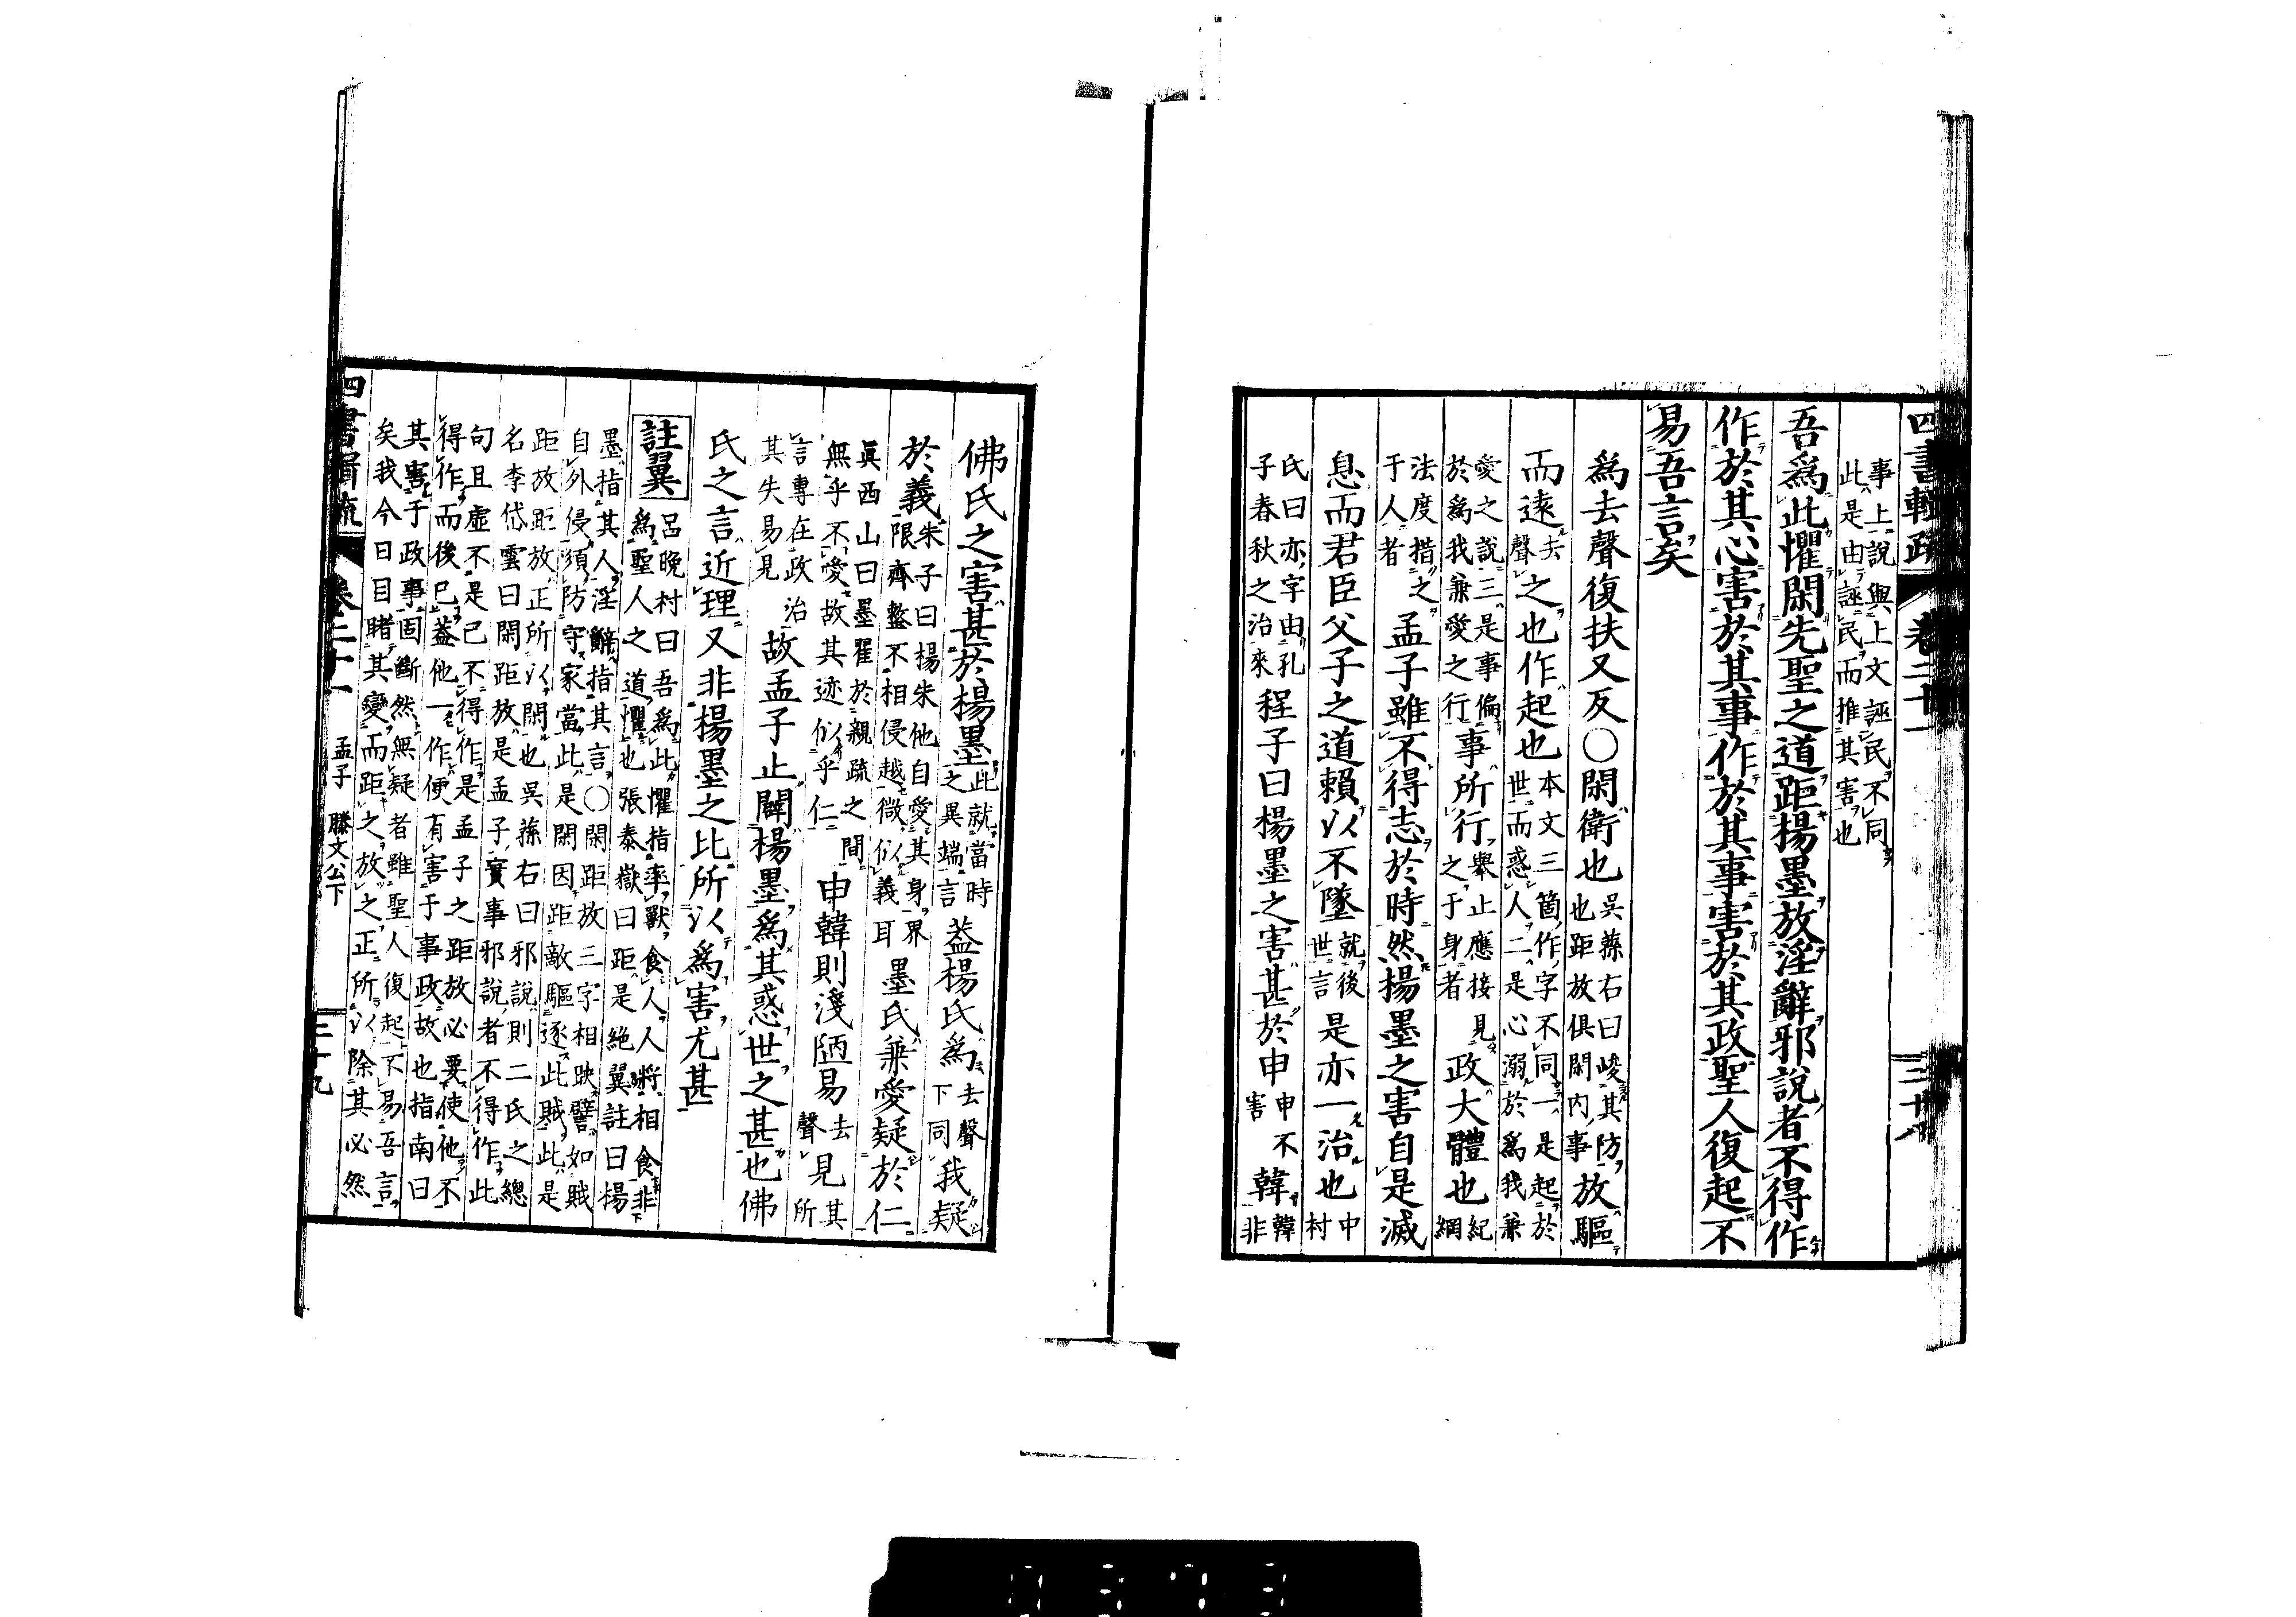 四書輯疏 卷二十一 三十八
事上說與上文誣民不同
此是由誣民而推其害也
吾爲此懼閑先聖之道距楊墨放淫辭邪說者不得作
作於其心害於其事作於其事害於其政聖人復起不
易吾言矣
爲去聲復扶又反○閑衛也
吳蓀右曰峻其防
也距放俱閑內事
放驅
而遠
去
聲
之也作起也
本文三箇作字不同一是起於
世而惑人二是心溺於爲我兼
愛之說三是事偏
於爲我兼愛之行
事所行
舉止應接見
之于身者
政大體也
紀
綱
法度措之
于人者
孟子雖不得志於時然楊墨之害自是滅
息而君臣父子之道賴以不墜
就後
世言
是亦一治也
中
村
氏曰亦字由孔
子春秋之治來
程子曰楊墨之害甚於申
申不
害
韓
韓
非
佛氏之害甚於楊墨
此就當時
之異端言
蓋楊氏爲
去聲
下同
我疑
於義
朱子曰楊朱他自愛其身界
限齊整不相侵越微似義耳
墨氏兼愛疑於仁
眞西山曰墨翟於親疏之間
無乎不愛故其迹似乎仁
申韓則淺陋易
去
聲
見
其
所
言專在政治
其失易見
故孟子止闢楊墨爲其惑世之甚也佛
氏之言近理又非楊墨之比所以爲害尤甚
註翼
呂晚村曰吾爲此懼指率獸食人人將相食非
爲聖人之道懼也張泰嶽曰距是絶翼註曰楊
墨指其人淫辭指其言○閑距放三字相映譬如賊
自外侵須防守家當此是閑因距敵驅逐此賊此是
距放距放正所以閑也吳蓀右曰邪說則二氏之總
名李岱雲曰閑距放是孟子實事邪說者不得作此
句且虛不是已不得作是孟子之距放必要使他不
得作而後已蓋他一作便有害于事政故也指南曰
其害于政事固斷然無疑者雖聖人復起不易吾言
矣我今日目睹其變而距之放之正所以除其必然
四書輯疏 卷二十一 孟子 滕文公下 三十九